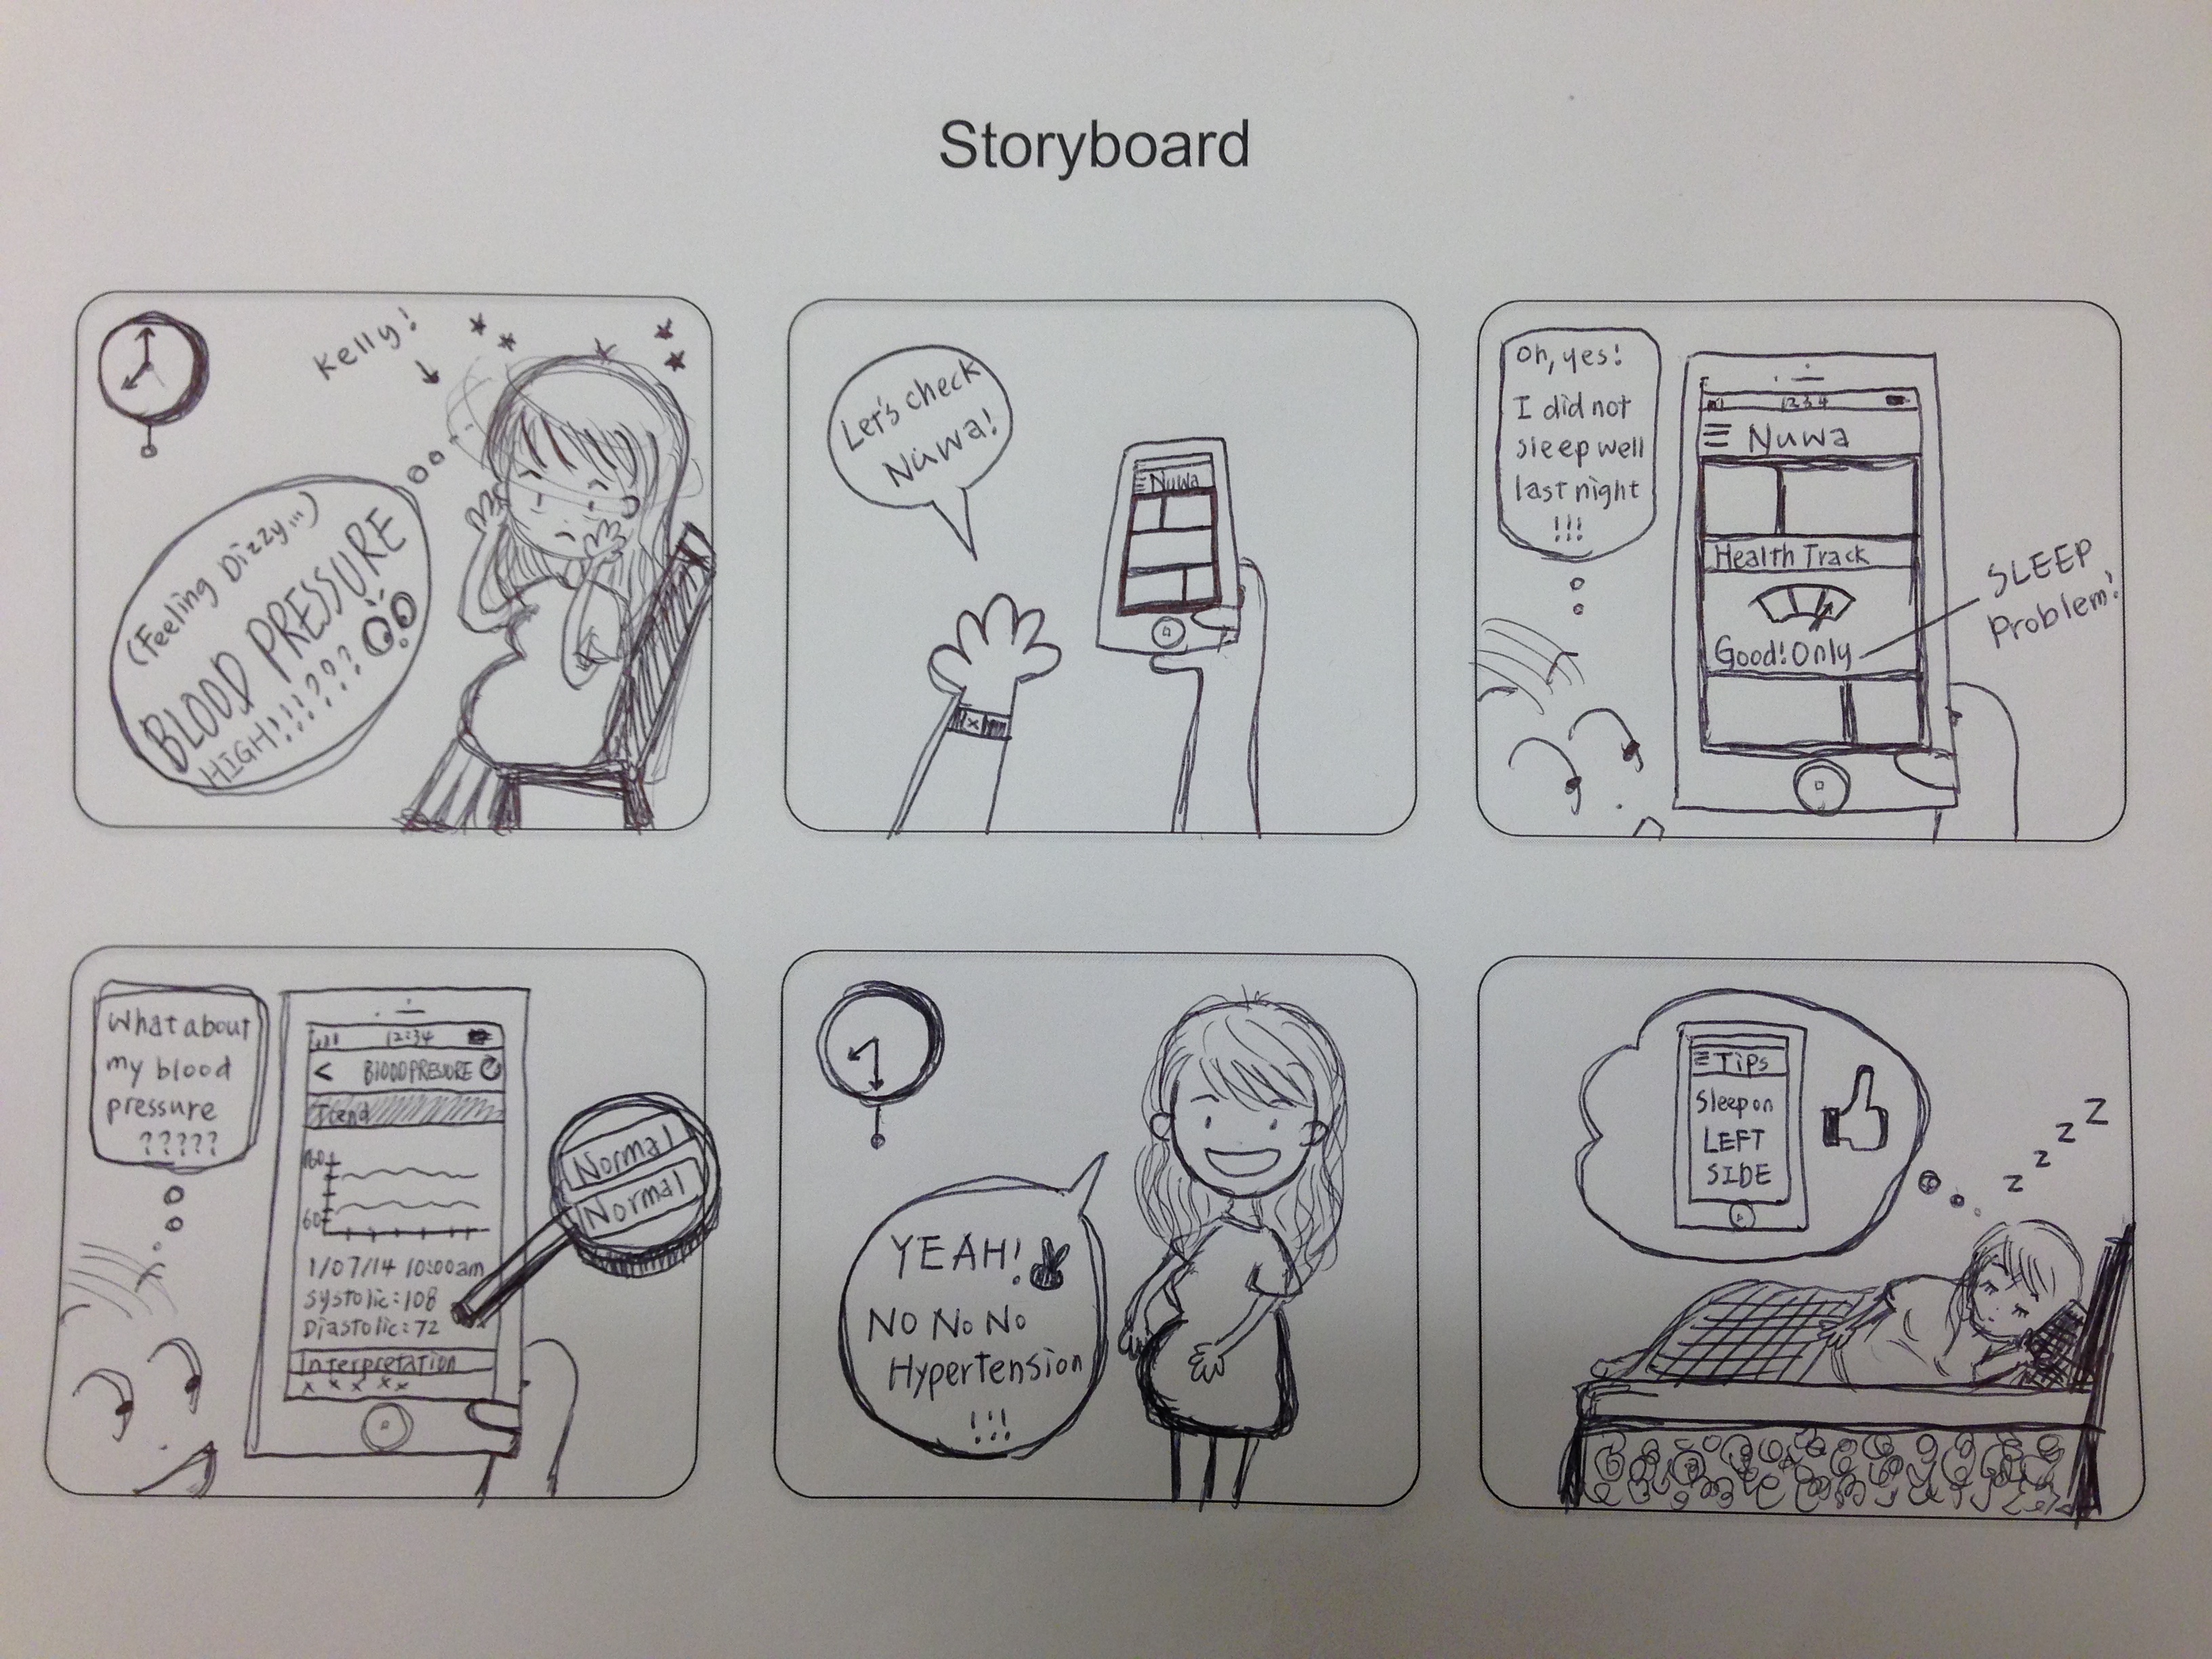 Storyboard
Kelly!
(Feeling Dizzy...)
BLOOD PRESSURE
HIGH!!!????
Let's check
Nuwa!
Nuwa
Oh, yes!
I did not
sleep well
last night
!!!
1234
Nuwa
Health Track
Good! Only
SLEEP
Problem!
What about
my blood
pressure
?????
12:34
< BLOODPRESSURE
Trend
160
60
1/07/14 10:00am
Systolic: 108
Diastolic: 72
Interpretation
x x x x x
Normal
Normal
YEAH!
NO No No
Hypertension
!!!
Tips
Sleep on
LEFT
SIDE
z z z z